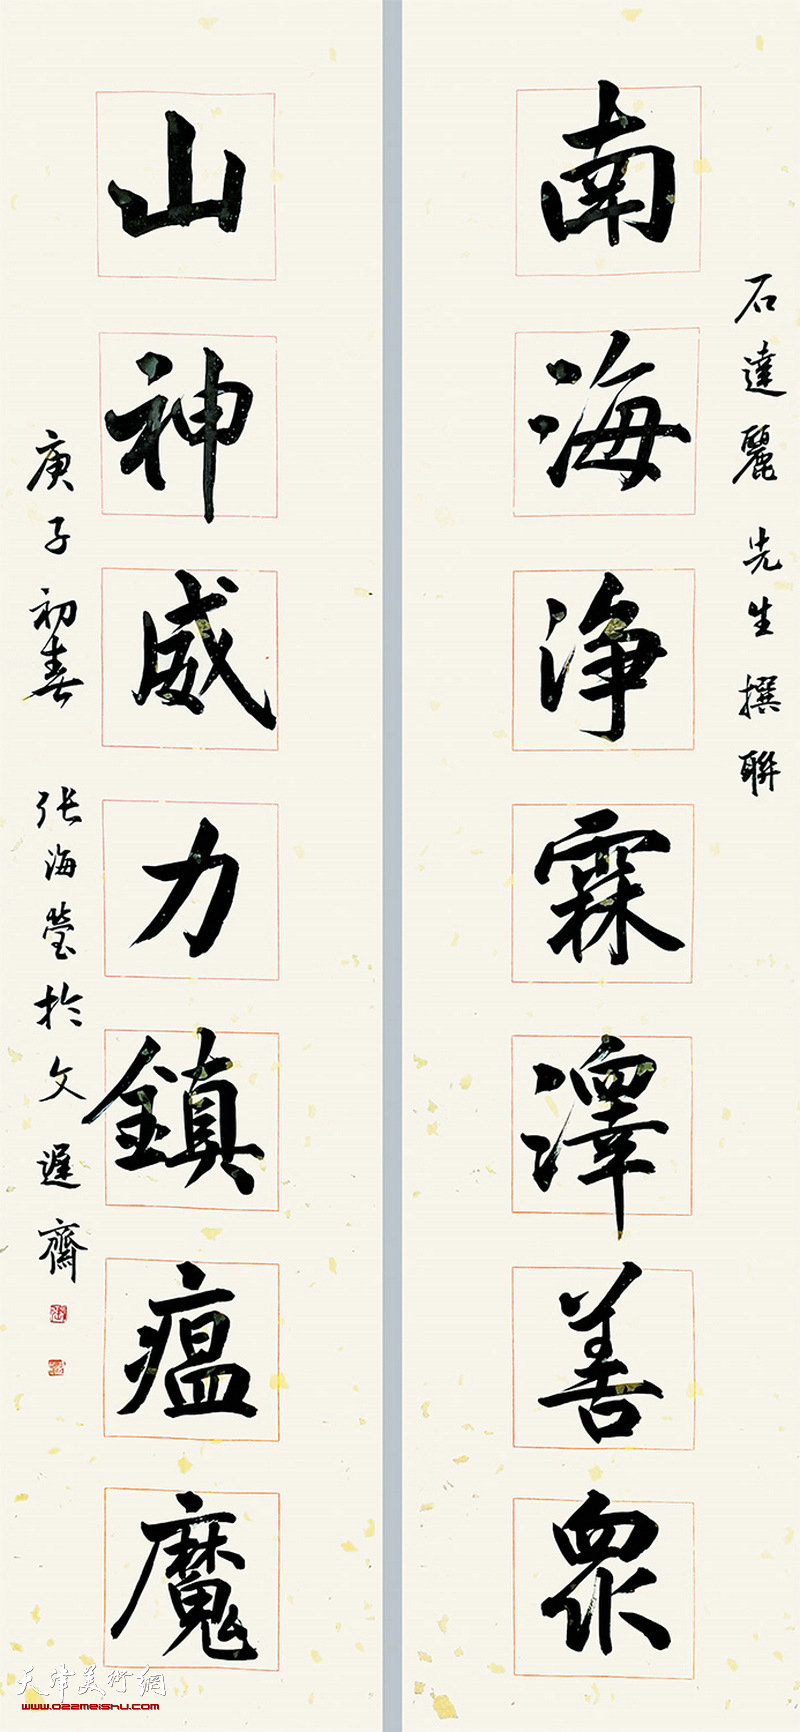 石達麗先生撰聯
南海淨霖澤善衆
山神威力鎮瘟魔
庚子初春 张海瑩於文遲齋
天津美術網
www.022meishu.com